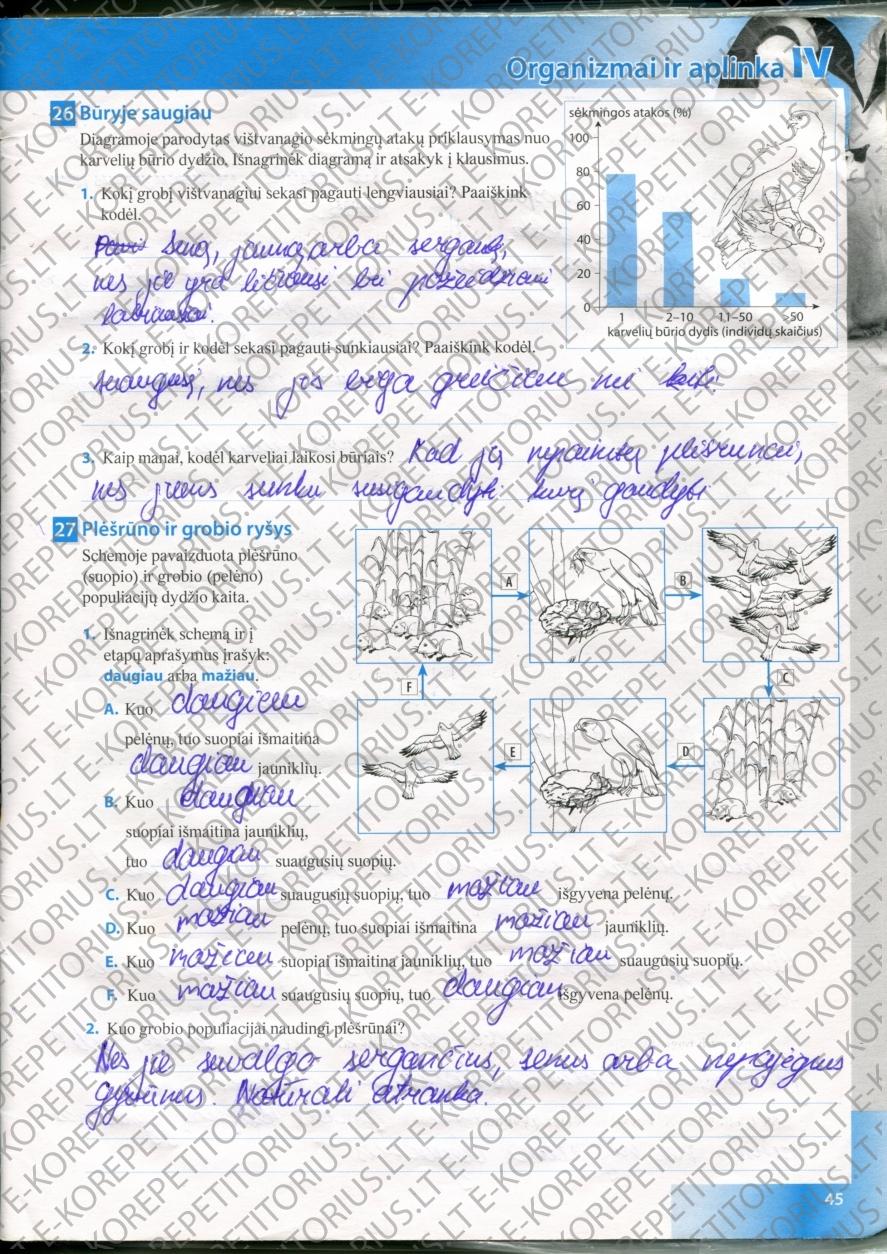 Organizmai ir aplinka IV
26 Būryje saugiau
Diagramoje parodytas vištvanagio sėkmingų atakų priklausymas nuo
karvelių būrio dydžio. Išnagrinėk diagramą ir atsakyk į klausimus.
1. Kokį grobį vištvanagiui sekasi pagauti lengviausiai? Paaiškink
kodėl.
Seną, jauną arba sergantį,
nes jie yra
2. Kokį grobį ir kodėl sekasi pagauti sunkiausiai? Paaiškink kodėl.
suaugusį, nes jis bėga greičiau nei
3. Kaip manai, kodėl karveliai laikosi būriais? Kad jų nepaimtų plėšrūnai,
nes jiems sunku susigaudyti kurį gaudyti
sėkmingos atakos (%)
100
80
60
40
20
0
1 2–10 11–50 >50
karvelių būrio dydis (individų skaičius)
27 Plėšrūno ir grobio ryšys
Schemoje pavaizduota plėšrūno
(suopio) ir grobio (pelėno)
populiacijų dydžio kaita.
1. Išnagrinėk schemą ir į
etapų aprašymus įrašyk:
daugiau arba mažiau.
A. Kuo daugiau
pelėnų, tuo suopiai išmaitina
daugiau jauniklių.
B. Kuo daugiau
suopiai išmaitina jauniklių,
tuo daugau suaugusių suopių.
C. Kuo daugiau suaugusių suopių, tuo mažiau išgyvena pelėnų.
D. Kuo mažiau pelėnų, tuo suopiai išmaitina mažiau jauniklių.
E. Kuo mažiau suopiai išmaitina jauniklių, tuo mažiau suaugusių suopių.
F. Kuo mažiau suaugusių suopių, tuo daugiau išgyvena pelėnų.
A
B
C
D
E
F
2. Kuo grobio populiacijai naudingi plėšrūnai?
Nes jie suvalgo sergančius, senus arba nepajėgius
gyvūnus. Natūrali atranka.
45
E-KOREPETITORIUS.LT